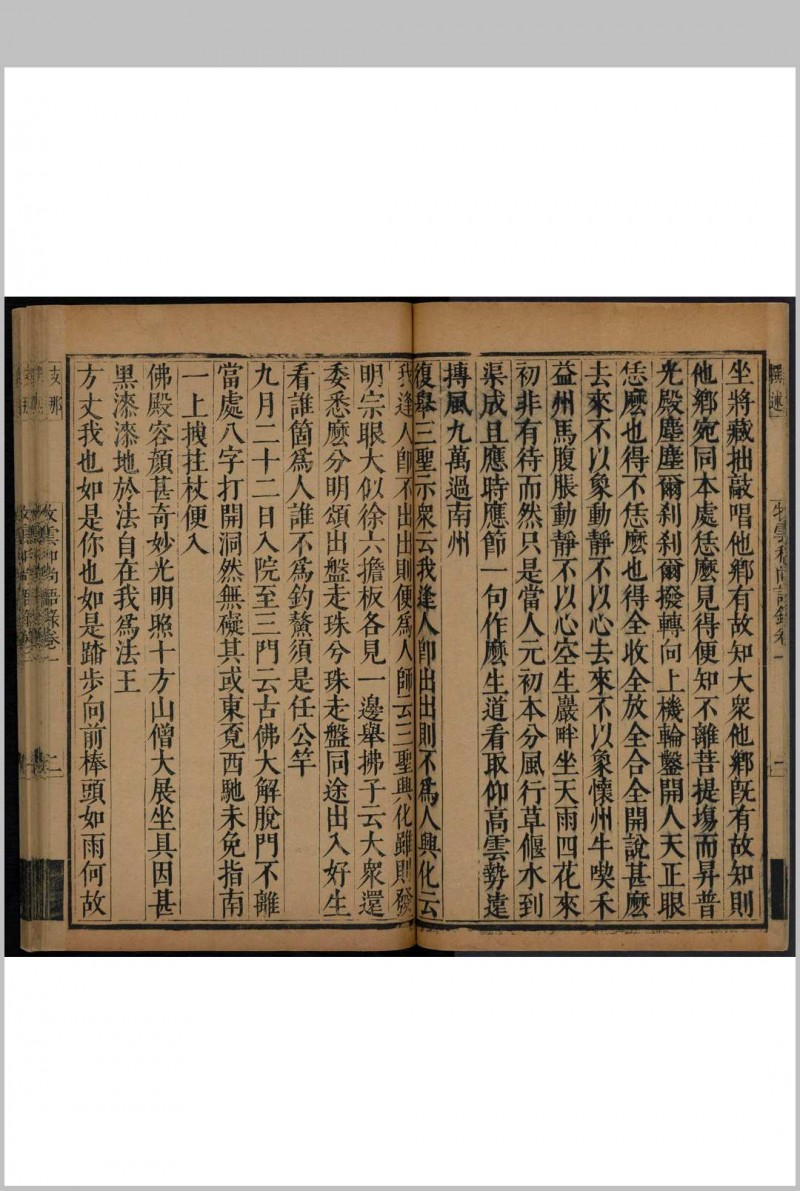 撰述
牧雲和尚語錄卷一
二
坐將藏抽敲唱他鄉有故知大衆他鄉旣有故知則
他鄉宛同本處恁麽見得便知不離菩提塲而昇普
光殿塵塵爾刹刹爾撥轉向上機輪鑿開人天正眼
恁麽也得不恁麽也得全收全放全合全開說甚麽
去來不以象動靜不以心去來不以象懷州牛喫禾
益州馬腹脹動靜不以心空生巖畔坐天雨四花來
初非有待而然只是當人元初本分風行草偃水到
渠成且應時應節一句作麽生道看取仰高雲勢遠
摶風九萬過南州
復舉三聖示衆云我逢人卽出出則不爲人興化云
我逢人卽不出出則便爲人師云三聖興化雖則發
明宗眼大似徐六擔板各見一邊舉拂子云大衆還
委悉麽分明頌出盤走珠分珠走盤同途出入好生
看誰箇爲人誰不爲釣鰲須是任公竿
九月二十二日入院至三門云古佛大解脫門不離
當處八字打開洞然無礙其或東覔西馳未免指南
一上拽拄杖便入
佛殿容顏甚奇妙光明照十方山僧大展坐具因甚
黑漆漆地於法自在我爲法王
方丈我也如是你也如是踏步向前棒頭如雨何故
支那
牧雲和尚語錄卷一
二